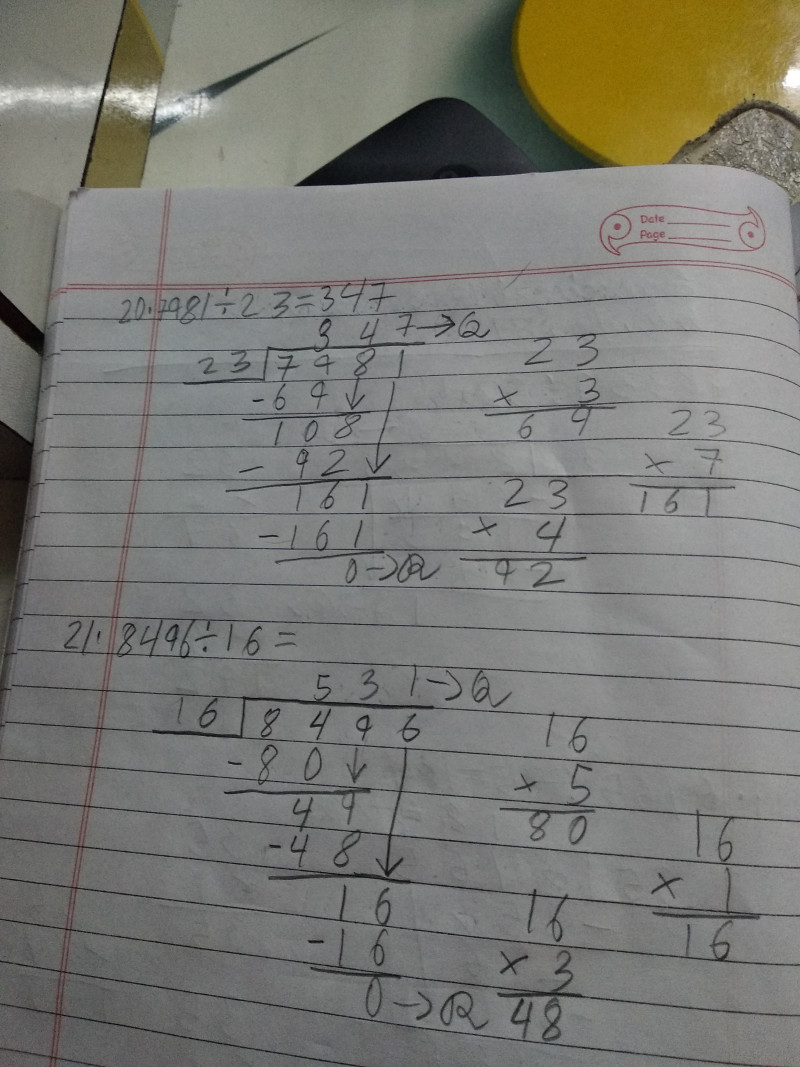 Date
Page
20. 7981÷23=347
3 4 7→Q
23 7981
-69
108
-92
161
-161
0→R
23
× 3
69
23
× 4
92
23
× 7
161
21. 8496÷16=
5 3 1→Q
16 8496
-80
49
-48
16
-16
0→R
16
× 5
80
16
× 3
48
16
× 1
16